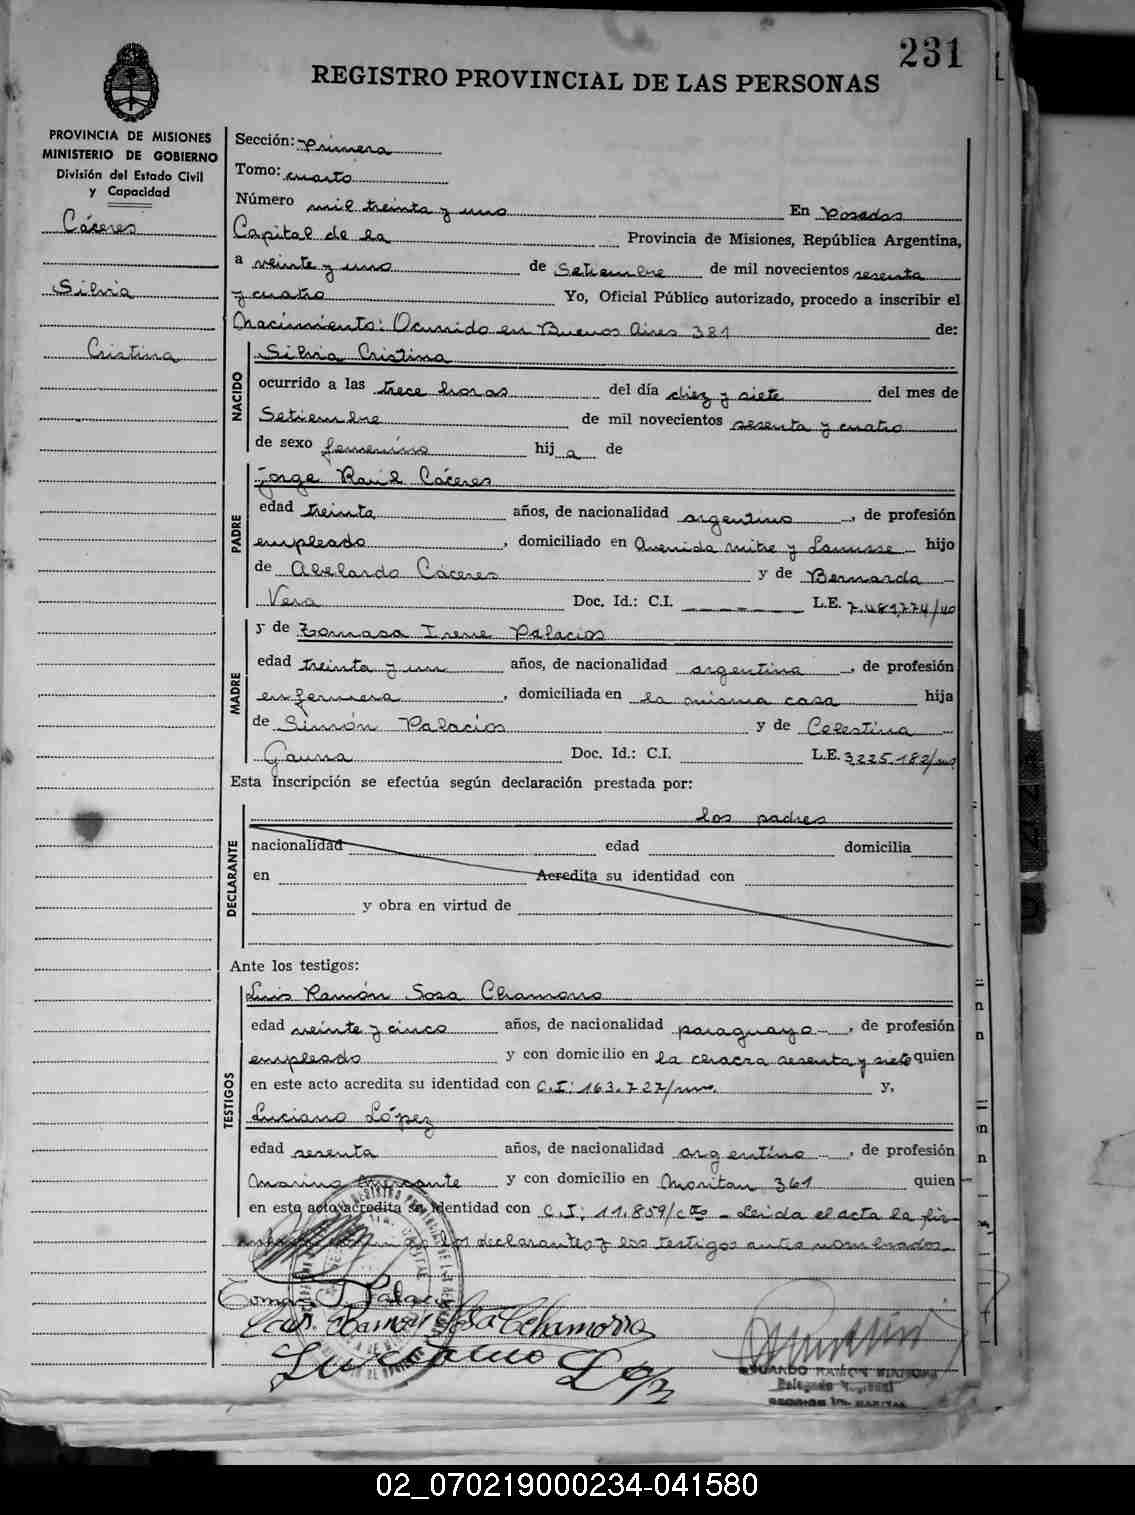 231
REGISTRO PROVINCIAL DE LAS PERSONAS
PROVINCIA DE MISIONES
MINISTERIO DE GOBIERNO
División del Estado Civil
y Capacidad
Cáceres
Silvia
Cristina
Sección: Primera
Tomo: cuarto
Número mil treinta y uno En Posadas
Capital de la Provincia de Misiones, República Argentina,
a veinte y uno de Setiembre de mil novecientos sesenta
y cuatro Yo, Oficial Público autorizado, procedo a inscribir el
Nacimiento: Ocurrido en Buenos Aires 381 de:
NACIDO
Silvia Cristina
ocurrido a las trece horas del día diez y siete del mes de
Setiembre de mil novecientos sesenta y cuatro
de sexo femenino hij a de
PADRE
Jorge Raúl Cáceres
edad treinta años, de nacionalidad argentino, de profesión
empleado, domiciliado en Avenida Mitre y Lanusse hijo
de Abelardo Cáceres y de Bernarda
Vera Doc. Id.: C.I. L.E. 7.481.774/
MADRE
y de Tomasa Irene Palacios
edad treinta y un años, de nacionalidad argentina, de profesión
enfermera, domiciliada en la misma casa hija
de Simón Palacios y de Celestina
Gauna Doc. Id.: C.I. L.E. 3225.182/
Esta inscripción se efectúa según declaración prestada por:
DECLARANTE
los padres
nacionalidad edad domicilia
en Acredita su identidad con
y obra en virtud de
Ante los testigos:
TESTIGOS
Luis Ramón Sosa Chamorro
edad veinte y cinco años, de nacionalidad paraguayo, de profesión
empleado y con domicilio en la chacra sesenta y siete quien
en este acto acredita su identidad con C.I: 163.727/ y,
Luciano López
edad sesenta años, de nacionalidad argentino, de profesión
Marino Mercante y con domicilio en Moritan 361 quien
en este acto acredita su identidad con C.I: 11.859/ctes - Leída el acta la fir-
los declarantes y los testigos antes nombrados.
Tomasa I. Palacios
Luis Ramón Sosa Chamorro
Luciano López
EDUARDO RAMON
Delegado Regional
02_070219000234-041580